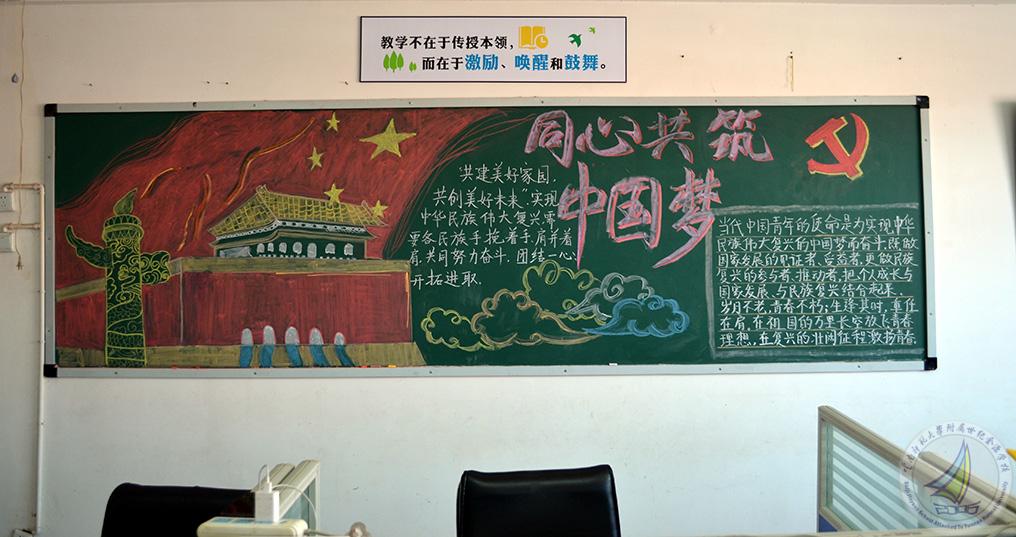 教学不在于传授本领,
而在于激励、唤醒和鼓舞。
同心共筑
中国梦
"共建美好家园,
共创美好未来",实现
中华民族伟大复兴需
要各民族手挽着手,肩并着
肩,共同努力奋斗,团结一心
开拓进取.
当代中国青年的使命是为实现中华
民族伟大复兴的中国梦而奋斗.既做
国家发展的见证者、受益者,更做民族
复兴的参与者、推动者,把个人成长与
国家发展、与民族复兴结合起来.
岁月不老,青春不朽;生逢其时,重任
在肩,在祖国的万里长空放飞青春
理想,在复兴的壮阔征程激扬青春
2006